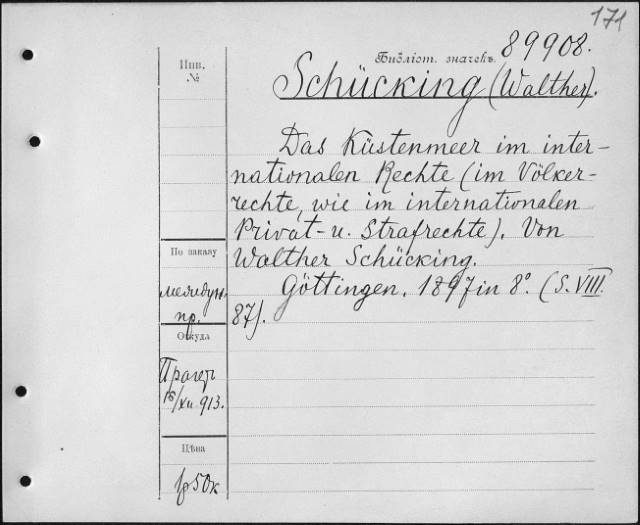 171
Инв.
№
Библіот. значекъ.
89908.
Schücking (Walther).
Das Küstenmeer im inter-
nationalen Rechte (im Völker-
rechte, wie im internationalen
Privat- u. Strafrechte). Von
Walther Schücking.
Göttingen. 1897 in 8º. (S. VIII.
87).
По заказу
междун.
пр.
Откуда
16/XII 913.
Цѣна
50к